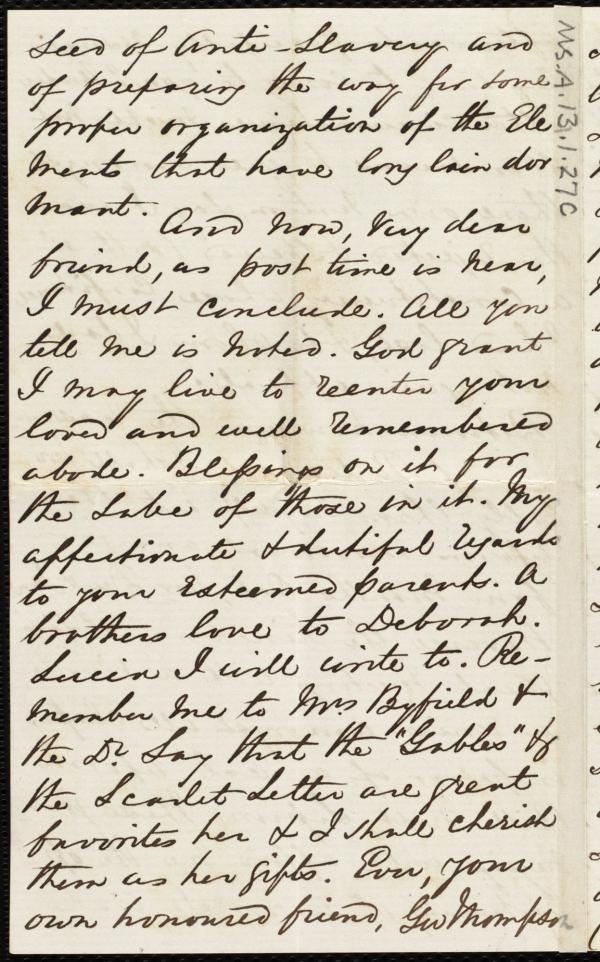 seed of Anti-Slavery and
of preparing the way for some
proper organization of the Ele
ments that have long lain dor
mant.
And now, very dear
friend, as post time is near,
I must conclude. All you
tell me is noted. God grant
I may live to reenter your
loved and well remembered
abode. Blessings on it for
the sake of those in it. My
affectionate & dutiful regards
to your esteemed parents. A
brothers love to Deborah.
Lucia I will write to. Re-
member me to Mrs Byfield &
the Dr. Say that the "Gables" &
the Scarlet Letter are great
favorites here & I shall cherish
them as her gifts. Ever, your
own honoured friend, Geo Thompson
Ms.A.1.3.1.27C